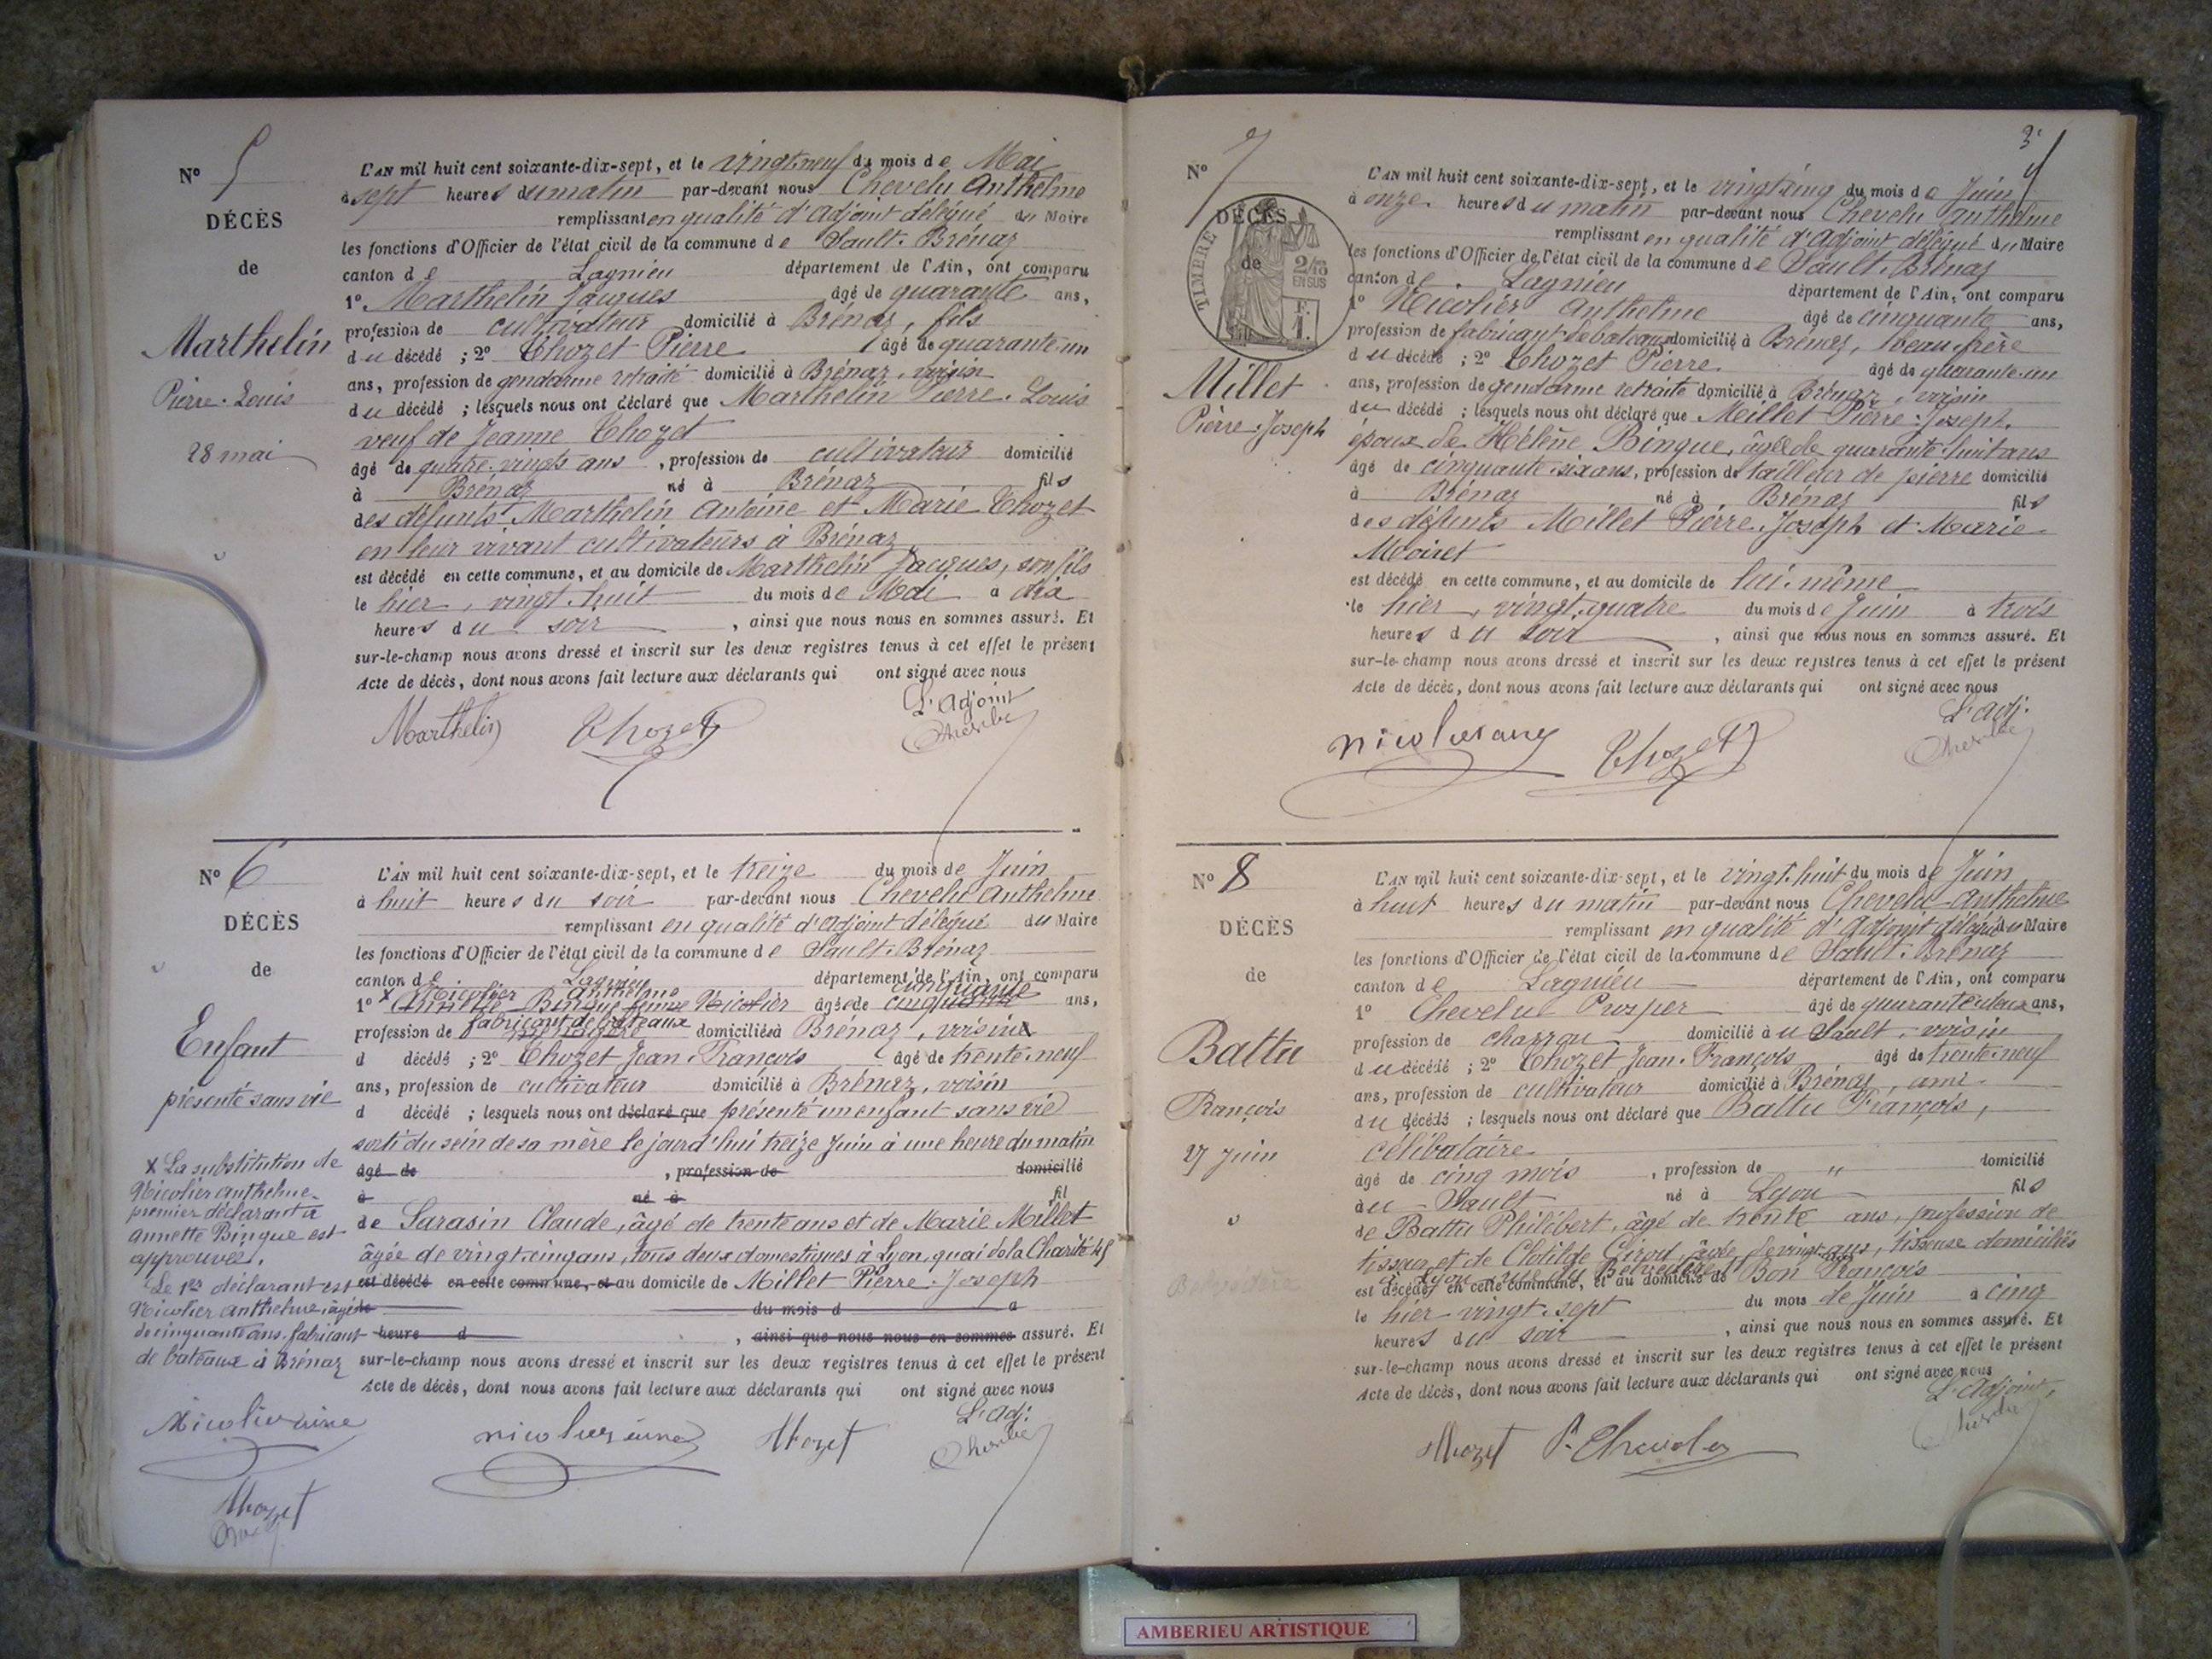 Nº 5
DÉCÈS
de
Marthelin
Pierre-Louis
28 mai
L'AN mil huit cent soixante-dix-sept, et le vingt-neuf du mois de Mai
à sept heures du matin par-devant nous Chevelu Anthelme
remplissant en qualité d'Adjoint délégué du Maire
les fonctions d'Officier de l'état civil de la commune de Sault-Brénaz
canton de Lagnieu département de l'Ain, ont comparu
1º Marthelin Jacques âgé de quarante ans,
profession de cultivateur domicilié à Brénaz, fils
du décédé ; 2º Thozet Pierre âgé de quarante-un
ans, profession de gendarme retraité domicilié à Brénaz, voisin
du décédé ; lesquels nous ont déclaré que Marthelin Pierre-Louis
veuf de Jeanne Thozet
âgé de quatre-vingts ans, profession de cultivateur domicilié
à Brénaz né à Brénaz fils
des défunts Marthelin Antoine et Marie Thozet
en leur vivant cultivateurs à Brénaz,
est décédé en cette commune, et au domicile de Marthelin Jacques, son fils
le hier, vingt-huit du mois de Mai à dix
heures du soir, ainsi que nous nous en sommes assuré. Et
sur-le-champ nous avons dressé et inscrit sur les deux registres tenus à cet effet le présent
Acte de décès, dont nous avons fait lecture aux déclarants qui ont signé avec nous
L'Adjoint
Marthelin Thozet Chevelu
Nº 6
DÉCÈS
de
Enfant
présenté sans vie
X La substitution de
Nicolier Anthelme
premier déclarant à
Annette Bingue est
approuvée.
Le 1er déclarant est
Nicolier Anthelme, âgé
de cinquante ans, fabricant
de bateaux à Brénaz
L'AN mil huit cent soixante-dix-sept, et le treize du mois de Juin
à huit heures du soir par-devant nous Chevelu Anthelme
remplissant en qualité d'Adjoint délégué du Maire
les fonctions d'Officier de l'état civil de la commune de Sault-Brénaz
canton de Lagnieu département de l'Ain, ont comparu
Nicolier Anthelme cinquante
1º X Annette Bingue femme Nicolier âgée de cinquante ans,
fabricant de bateaux
profession de ménagère domiciliée à Brénaz, voisine
d décédé ; 2º Thozet Jean-François âgé de trente-neuf
ans, profession de cultivateur domicilié à Brénaz, voisin
d décédé ; lesquels nous ont déclaré que présenté un enfant sans vie
sorti du sein de sa mère le jourd'hui treize Juin à une heure du matin
âgé de , profession de domicilié
à né à fil
de Sarasin Claude, âgé de trente ans et de Marie Millet
âgée de vingt-cinq ans, tous deux domestiques à Lyon, quai de la Charité
est décédé en cette commune, et au domicile de Millet Pierre-Joseph
le du mois d à
heure d , ainsi que nous nous en sommes assuré. Et
sur-le-champ nous avons dressé et inscrit sur les deux registres tenus à cet effet le présent
Acte de décès, dont nous avons fait lecture aux déclarants qui ont signé avec nous
L'Adj.
Nicolier aîné nicolier ainé Thozet Chevelu
Thozet
Nº 7
3
TIMBRE
2/10
EN SUS
F.
1.
DÉCÈS
de
Millet
Pierre-Joseph
L'AN mil huit cent soixante-dix-sept, et le vingt-cinq du mois de Juin
à onze heures du matin par-devant nous Chevelu Anthelme
remplissant en qualité d'Adjoint délégué du Maire
les fonctions d'Officier de l'état civil de la commune de Sault-Brénaz
canton de Lagnieu département de l'Ain, ont comparu
1º Nicolier Anthelme âgé de cinquante ans,
profession de fabricant de bateaux domicilié à Brénaz, beau-frère
du décédé ; 2º Thozet Pierre âgé de quarante-un
ans, profession de gendarme retraité domicilié à Brénaz, voisin
du décédé ; lesquels nous ont déclaré que Millet Pierre-Joseph,
époux de Hélène Bingue, âgée de quarante-huit ans
âgé de cinquante-six ans, profession de tailleur de pierre domicilié
à Brénaz né à Brénaz fils
des défunts Millet Pierre-Joseph et Marie
Moiret
est décédé en cette commune, et au domicile de lui-même
le hier, vingt-quatre du mois de Juin à trois
heures du soir, ainsi que nous nous en sommes assuré. Et
sur-le-champ nous avons dressé et inscrit sur les deux registres tenus à cet effet le présent
Acte de décès, dont nous avons fait lecture aux déclarants qui ont signé avec nous
L'Adj.
Thozet Chevelu
Nº 8
DÉCÈS
de
Battu
François
27 juin
L'AN mil huit cent soixante-dix-sept, et le vingt-huit du mois de Juin
à huit heures du matin par-devant nous Chevelu Anthelme
remplissant en qualité d'Adjoint délégué du Maire
les fonctions d'Officier de l'état civil de la commune de Sault-Brénaz
canton de Lagnieu département de l'Ain, ont comparu
1º Chevelu Prosper âgé de quarante-deux ans,
profession de charron domicilié à u Sault, voisin
du décédé ; 2º Thozet Jean-François âgé de trente-neuf
ans, profession de cultivateur domicilié à Brénaz, ami
du décédé ; lesquels nous ont déclaré que Battu François,
célibataire
âgé de cinq mois, profession de " domicilié
au Sault né à Lyon fils
de Battu Philibert, âgé de trente ans, profession de
tisseur et de Clotilde Girod, âgée de vingt ans, tisseuse domiciliés
à Lyon, rue du Belvédère
est décédé en cette commune, et au domicile de Bon François
le hier vingt-sept du mois de Juin à cinq
heures du soir, ainsi que nous nous en sommes assuré. Et
sur-le-champ nous avons dressé et inscrit sur les deux registres tenus à cet effet le présent
Acte de décès, dont nous avons fait lecture aux déclarants qui ont signé avec nous
L'Adjoint,
Thozet P. Chevelu Chevelu
AMBERIEU ARTISTIQUE